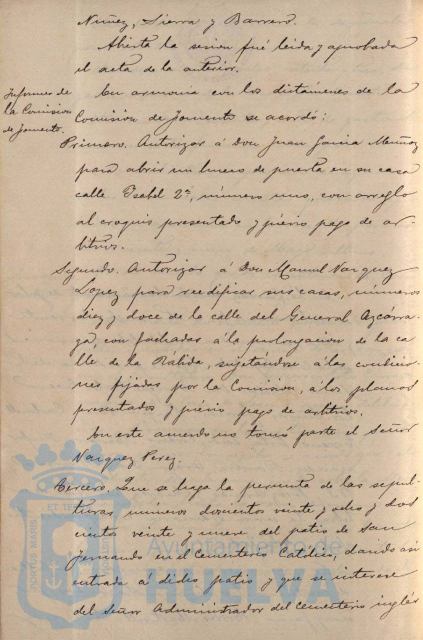 Nuñez, Sierra y Barrero.
Abierta la sesion fué leida y aprobada
el acta de la anterior.
Informes de
la Comision
de fomento.
En armonia con los dictámenes de la
Comision de fomento se acordó:
Primero. Autorizar á Don Juan Garcia Muñoz
para abrir un hueco de puerta en su casa
calle Isabel 2ª, número uno, con arreglo
al croquis presentado y prévio pago de ar-
bitrios.
Segundo. Autorizar á Don Manuel Vazquez
Lopez para reedificar sus casas, números
diez y doce de la calle del General Azcárra-
ga, con fachadas á la prolongacion de la ca
lle de la Rábida, sujetándose á las condicio-
nes fijadas por la Comision, á los planos
presentados y prévio pago de arbitrios.
En este acuerdo no tomó parte el señor
Vazquez Perez.
Tercero. Que se haga la permuta de las sepul-
turas números doscientos veinte y ocho y dos
cientos veinte y nueve del patio de San
Fernando en el Cementerio Católico, dando asi
entrada á dicho patio y que se interese
del Señor Administrador del Cementerio inglés
PORTUS MARIS
Ayuntamiento de
HUELVA